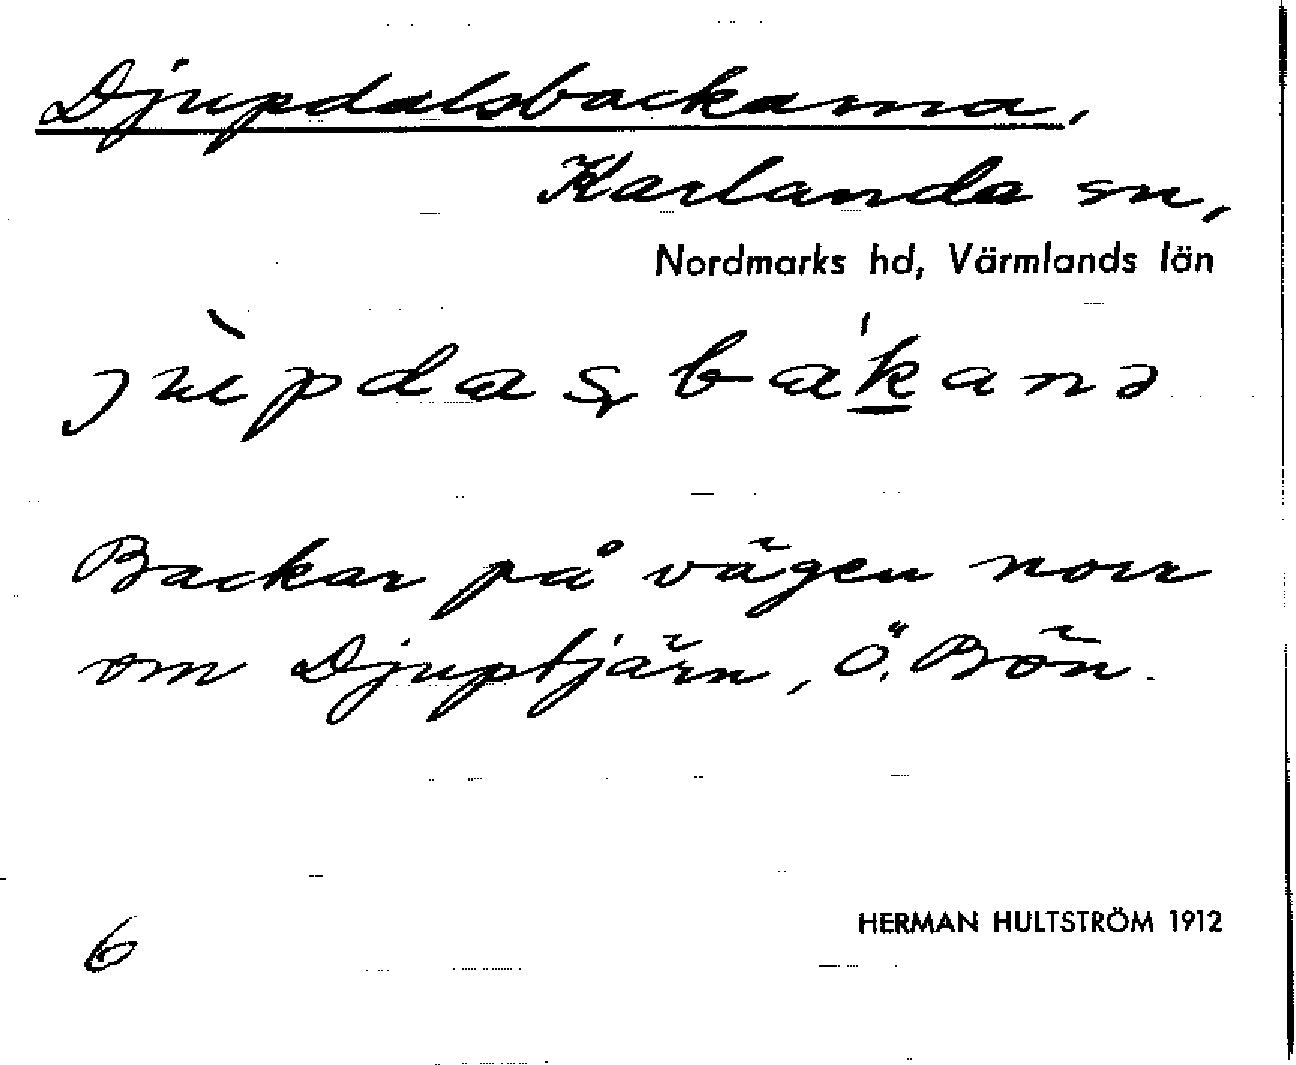 Djupdalsbackarna,
Karlanda sn,
Nordmarks hd, Värmlands län
jùpdasbákanə
Backar på vägen norr
om Djuptjärn, Ö. Bön.
HERMAN HULTSTRÖM 1912
6